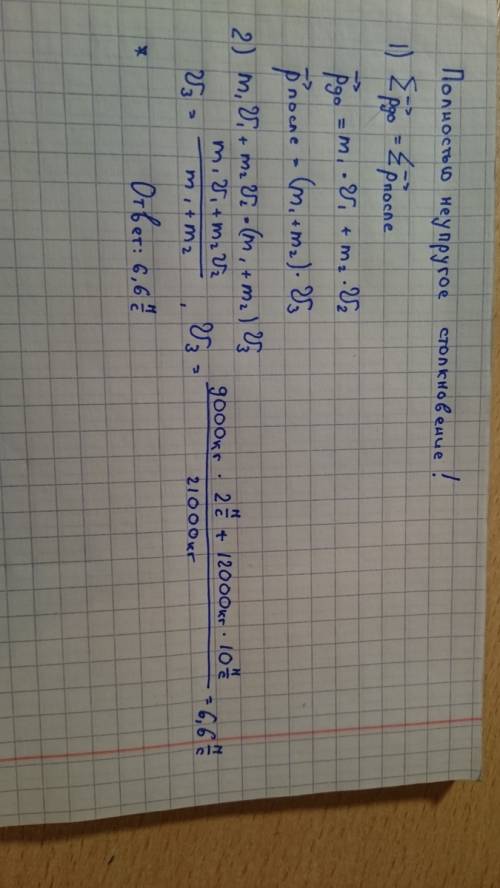 Полностью неупругое столкновение!
1) Σp⃗до = Σp⃗после
p⃗до = m₁ · v₁ + m₂ · v₂
p⃗после = (m₁ + m₂) · v₃
2) m₁v₁ + m₂v₂ = (m₁ + m₂) v₃
v₃ = (m₁v₁ + m₂v₂) / (m₁ + m₂) , v₃ = (9000кг · 2 м/с + 12000кг · 10 м/с) / 21000кг = 6,6 м/с
* Ответ: 6,6 м/с